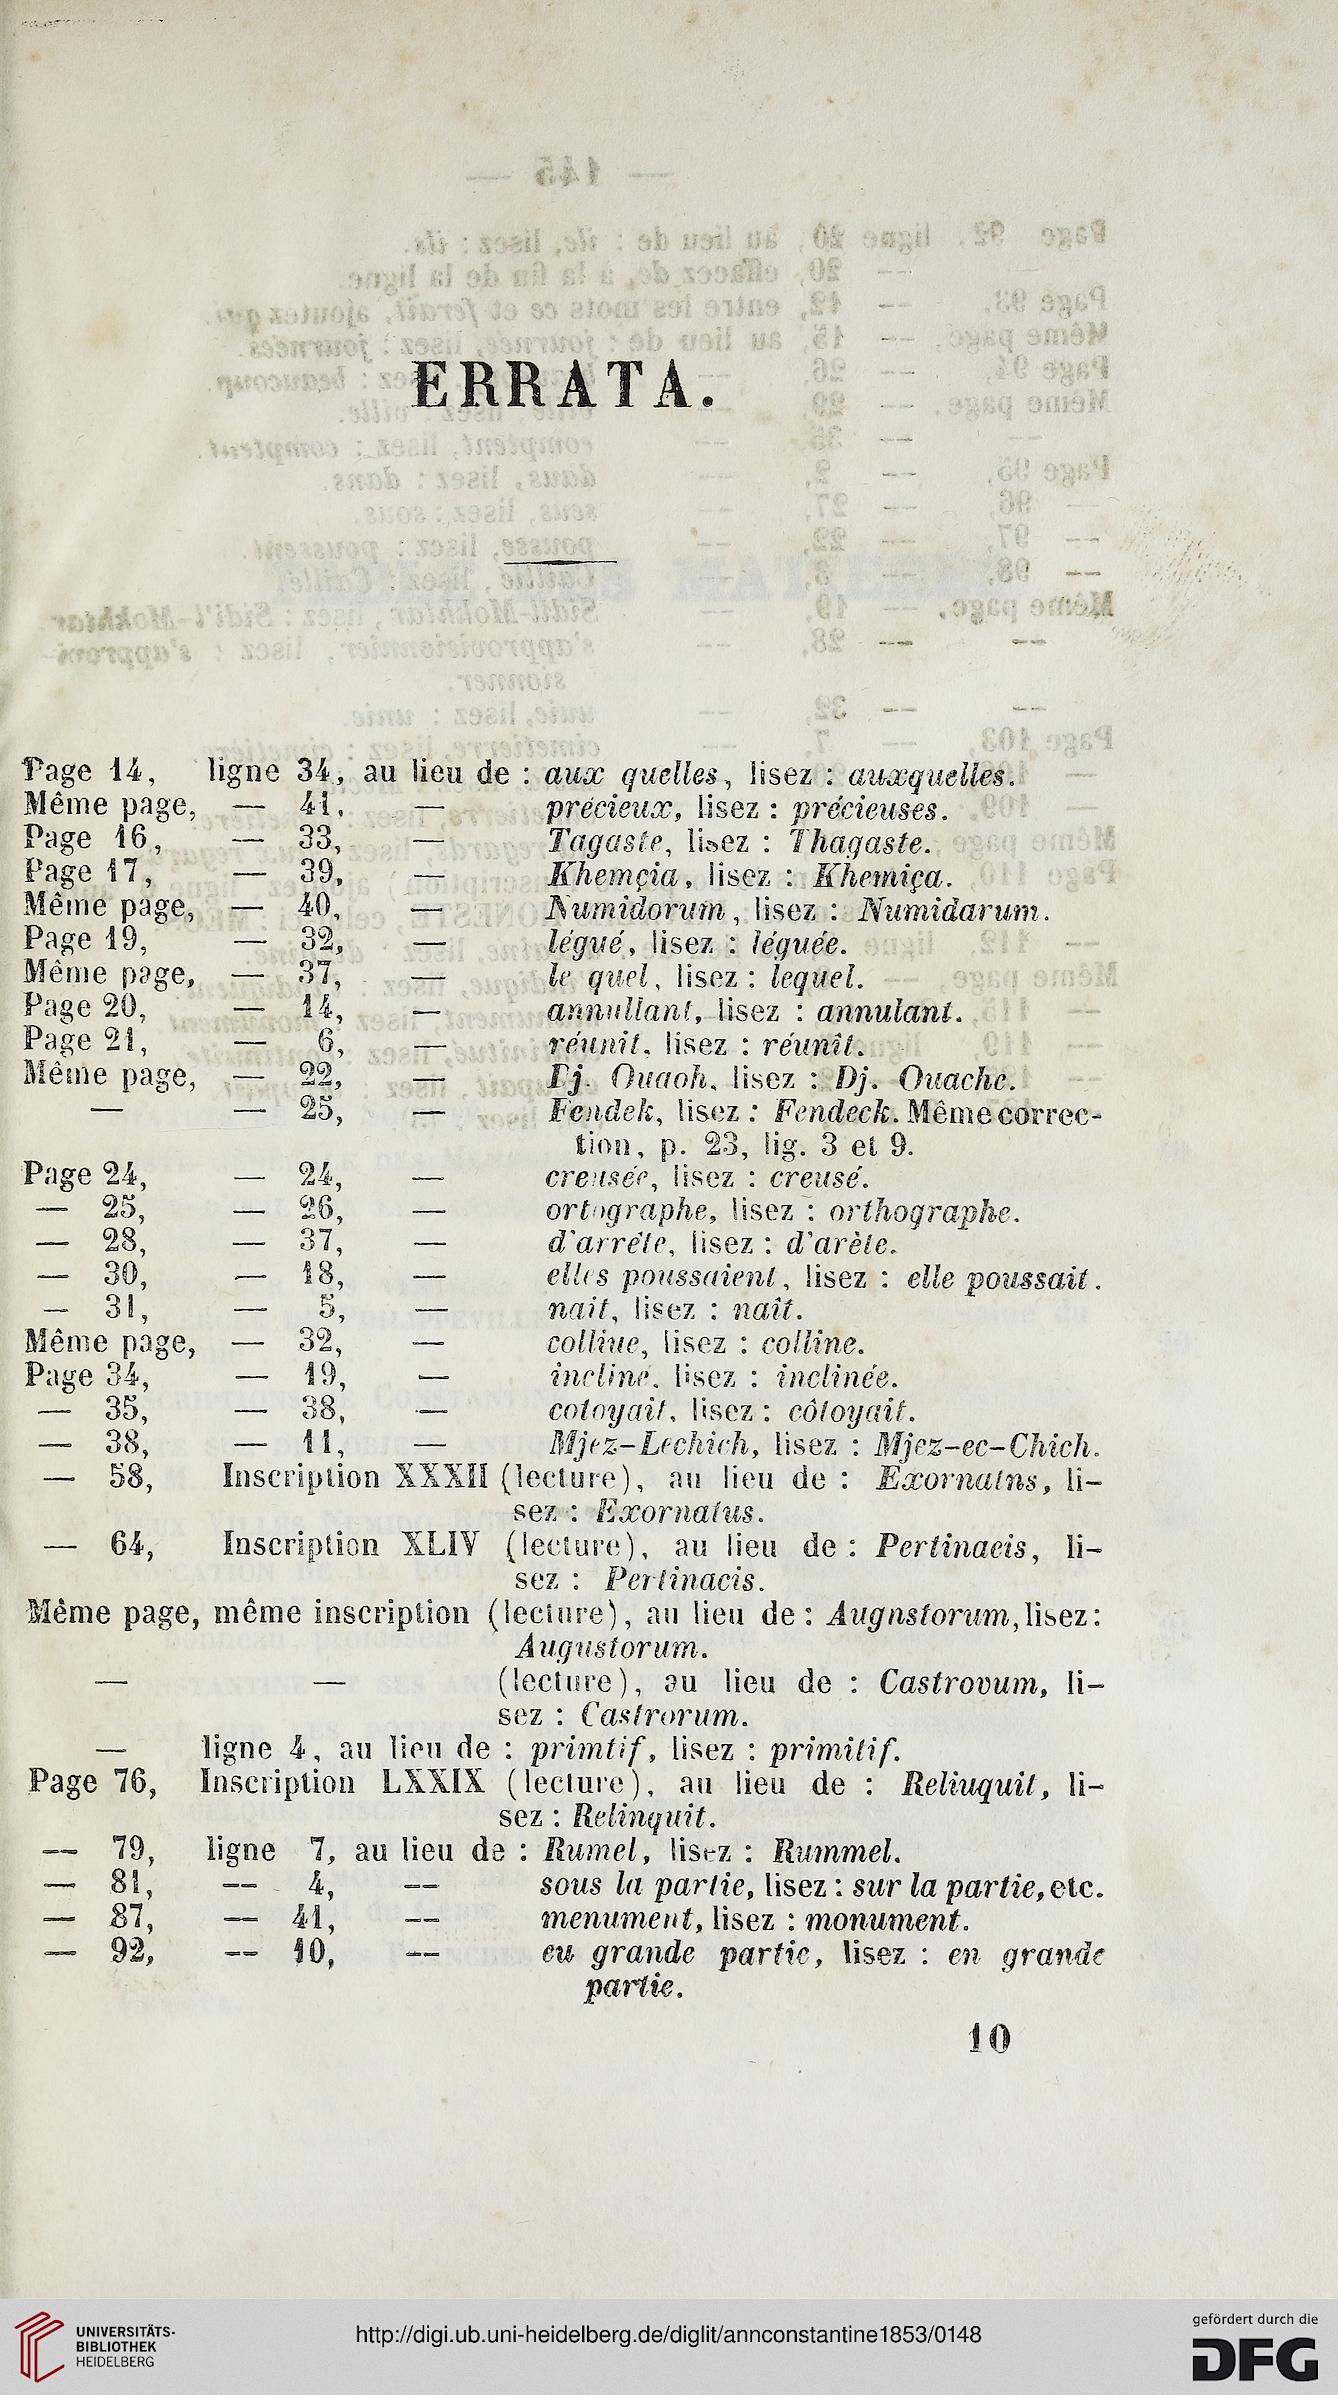 ERRATA.
Page 14, ligne 34, au lieu de : aux quelles, lisez : auxquelles.
Même page, — 41, — précieux, lisez : précieuses.
Page 16, — 33, — Tagaste, lisez : Thagaste.
Page 17, — 39, — Khemçia, lisez : Khemiça.
Même page, — 40, — Numidorum, lisez : Numidarum.
Page 19, — 32, — légué, lisez : léguée.
Même page, — 37, — le quel, lisez : lequel.
Page 20, — 14, — annullant, lisez : annulant.
Page 21, — 6, — réunit, lisez : réunît.
Même page, — 22, — Dj. Ouaoh, lisez : Dj. Ouache.
— — 25, — Fendek, lisez : Fendeck. Même correc-
tion, p. 23, lig. 3 et 9.
Page 24, — 24, — creusée, lisez : creusé.
— 25, — 26, — ortographe, lisez : orthographe.
— 28, — 37, — d'arrête, lisez : d'arète.
— 30, — 18, — elles poussaient, lisez : elle poussait.
— 31, — 5, — nait, lisez : naît.
Même page, — 32, — colliue, lisez : colline.
Page 34, — 19, — incline, lisez : inclinée.
— 35, — 38, — cotoyait, lisez : côtoyait.
— 38, — 11, — Mjez-Lechich, lisez : Mjez-ec-Chich.
— 58, Inscription XXXII (lecture), au lieu de : Exornatns, li-
sez : Exornatus.
— 64, Inscription XLIV (lecture), au lieu de : Pertinaeis, li-
sez : Pertinacis.
Même page, même inscription (lecture), au lieu de : Augnstorum, lisez :
Augustorum.
— — (lecture), au lieu de : Castrovum, li-
sez : Castrorum.
— ligne 4, au lieu de : primtif, lisez : primitif.
Page 76, Inscription LXXIX (lecture), au lieu de : Reliuquit, li-
sez : Relinquit.
— 79, ligne 7, au lieu de : Rumel, lisez : Rummel.
— 81, — 4, — sous la partie, lisez : sur la partie, etc.
— 87, — 41, — menument, lisez : monument.
— 92, — 10, — eu grande partie, lisez : en grande
partie.
10
UNIVERSITÄTS-
BIBLIOTHEK
HEIDELBERG
http://digi.ub.uni-heidelberg.de/diglit/annconstantine1853/0148
gefördert durch die
DFG